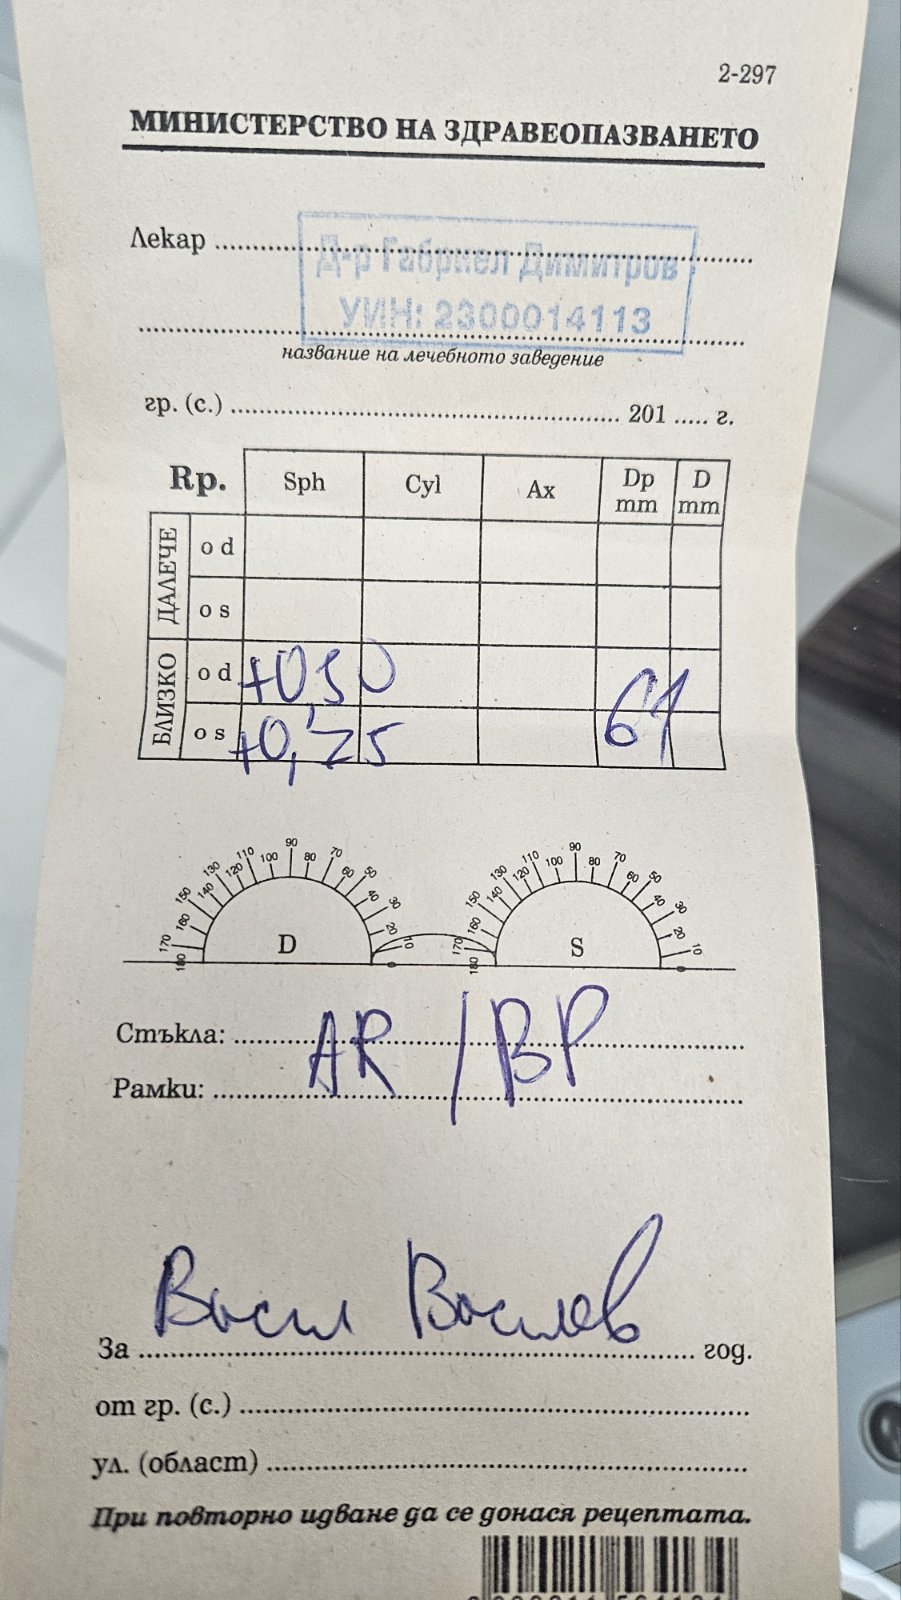 2-297
МИНИСТЕРСТВО НА ЗДРАВЕОПАЗВАНЕТО
Лекар
Д-р Габриел Димитров
УИН: 2300014113
название на лечебното заведение
гр. (с.) 201 ..... г.
Rp. Sph Cyl Ax Dp mm D mm
ДАЛЕЧЕ
o d
o s
БЛИЗКО
o d +0,50 61
o s +0,25
180 170 160 150 140 130 120 110 100 90 80 70 60 50 40 30 20 10 0
D
180 170 160 150 140 130 120 110 100 90 80 70 60 50 40 30 20 10 0
S
Стъкла: AR / BP
Рамки:
За Васил Василев год.
от гр. (с.)
ул. (област)
При повторно идване да се донася рецептата.